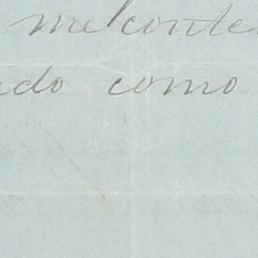 me conte
do como